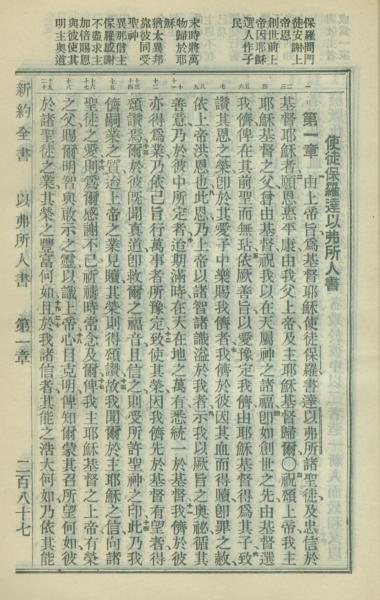 使徒保羅達以弗所人書
第一章 由上帝旨爲基督耶穌使徒保羅書達以弗所諸聖徒及忠信於
基督耶穌者願恩惠平康由我父上帝及主耶穌基督歸爾〇祝頌上帝我主
耶穌基督之父曾由基督祝我以在天屬神之諸福卽如創世之先由基督選
我儕俾在其前聖而無玷依厥善旨以愛豫定我儕由耶穌基督得爲其子致
讚其恩之榮卽於其愛子中樂賜我儕者我儕於彼因其血而得贖卽罪之赦
依上帝洪恩也此恩乃上帝以諸智諸識溢於我者示我以厥旨之奧祕循其
善意乃於彼中所定者迨期滿時在天在地之萬有悉統一於基督我儕於彼
亦得爲業乃依己旨行萬事者所豫定致使其榮因我儕先於基督有望者得
頌讚焉爾於彼旣聞眞道卽救爾之福音且信之則受所許聖神之印此乃我
儕嗣業之質迨上帝之業見贖其榮則得頌讚故我聞爾於主耶穌之信向諸
聖徒之愛則爲爾感謝不已祈禱時常念及爾俾我主耶穌基督之上帝有榮
之父賜爾明智與啟示之靈以識上帝心目克明俾知爾蒙其召所望何如彼
於諸聖徒之業其榮之豐富何如且於我諸信者其能之浩大何如乃依其能
保羅問門
徒安謝上
帝恩
創世前上
帝因耶穌
選人作子
民
末時將萬
物歸於耶
穌
猶太異邦
靠彼同受
聖神
保羅感謝
異那信主
不盡求主
加倍賜恩
與彼使其
明主奧道
新約全書 以弗所人書 第一章 二百八十七